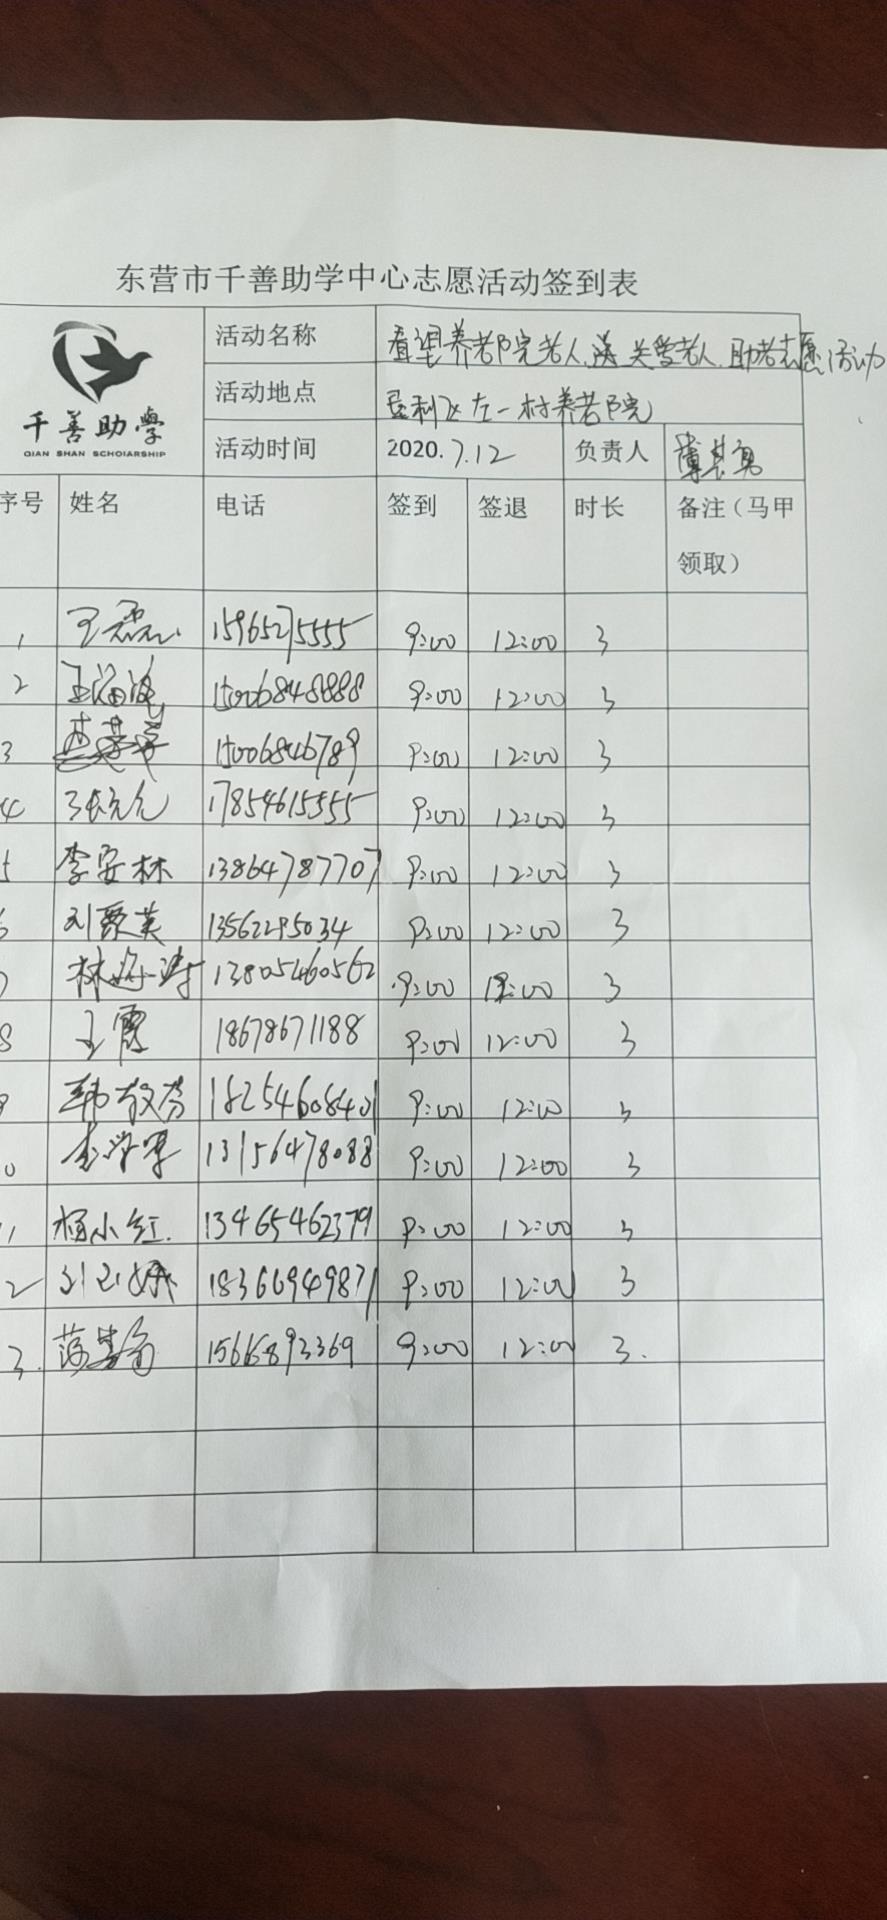 东营市千善助学中心志愿活动签到表
千善助学
QIAN SHAN SCHOIARSHIP
活动名称 看望养老院老人 关爱老人 助老志愿活动
活动地点 垦利区左一村养老院
活动时间 2020.7.12 负责人
序号 姓名 电话 签到 签退 时长 备注（马甲领取）
1 王磊 15965275555 9:00 12:00 3
2 王海波 15006848888 9:00 12:00 3
3 15006846789 9:00 12:00 3
4 张元元 17854615555 9:00 12:00 3
5 李安林 13864787707 9:00 12:00 3
6 刘聚英 13562295034 9:00 12:00 3
7 林海涛 13805460562 9:00 12:00 3
8 王霞 18678671188 9:00 12:00 3
9 韩敬芬 18254608401 9:00 12:00 3
0 李学军 13156478088 9:00 12:00 3
1 杨小红 13465462379 9:00 12:00 3
2 刘玉娥 18366949871 9:00 12:00 3
3. 1566893369 9:00 12:00 3.